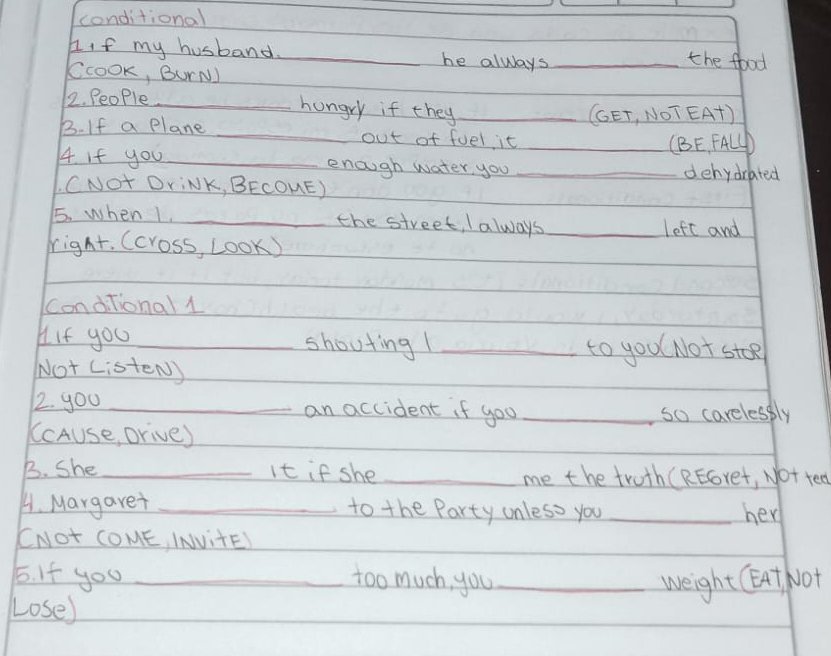 conditional
1. if my husband. ________ he always ________ the food
(COOK, BURN)
2. People ________ hungry if they ________ (GET, NOT EAT)
3. If a Plane ________ out of fuel, it ________ (BE, FALL)
4. if you ________ enough water, you ________ dehydrated
.(NOT DRINK, BECOME)
5. when I. ________ the street, I always ________ left and
right. (Cross, LOOK)
Conditional 1
1 if you ________ shouting I ________ to you (NOT STOP
NOT LISTEN)
2. you ________ an accident if you ________ so carelessly
(CAUSE, Drive)
3. She ________ it if she ________ me the truth (REGret, NOT tell
4. Margaret ________ to the Party unless you ________ her
(NOT COME, INVITE)
5. If you ________ too much, you ________ weight (EAT, NOT
Lose)